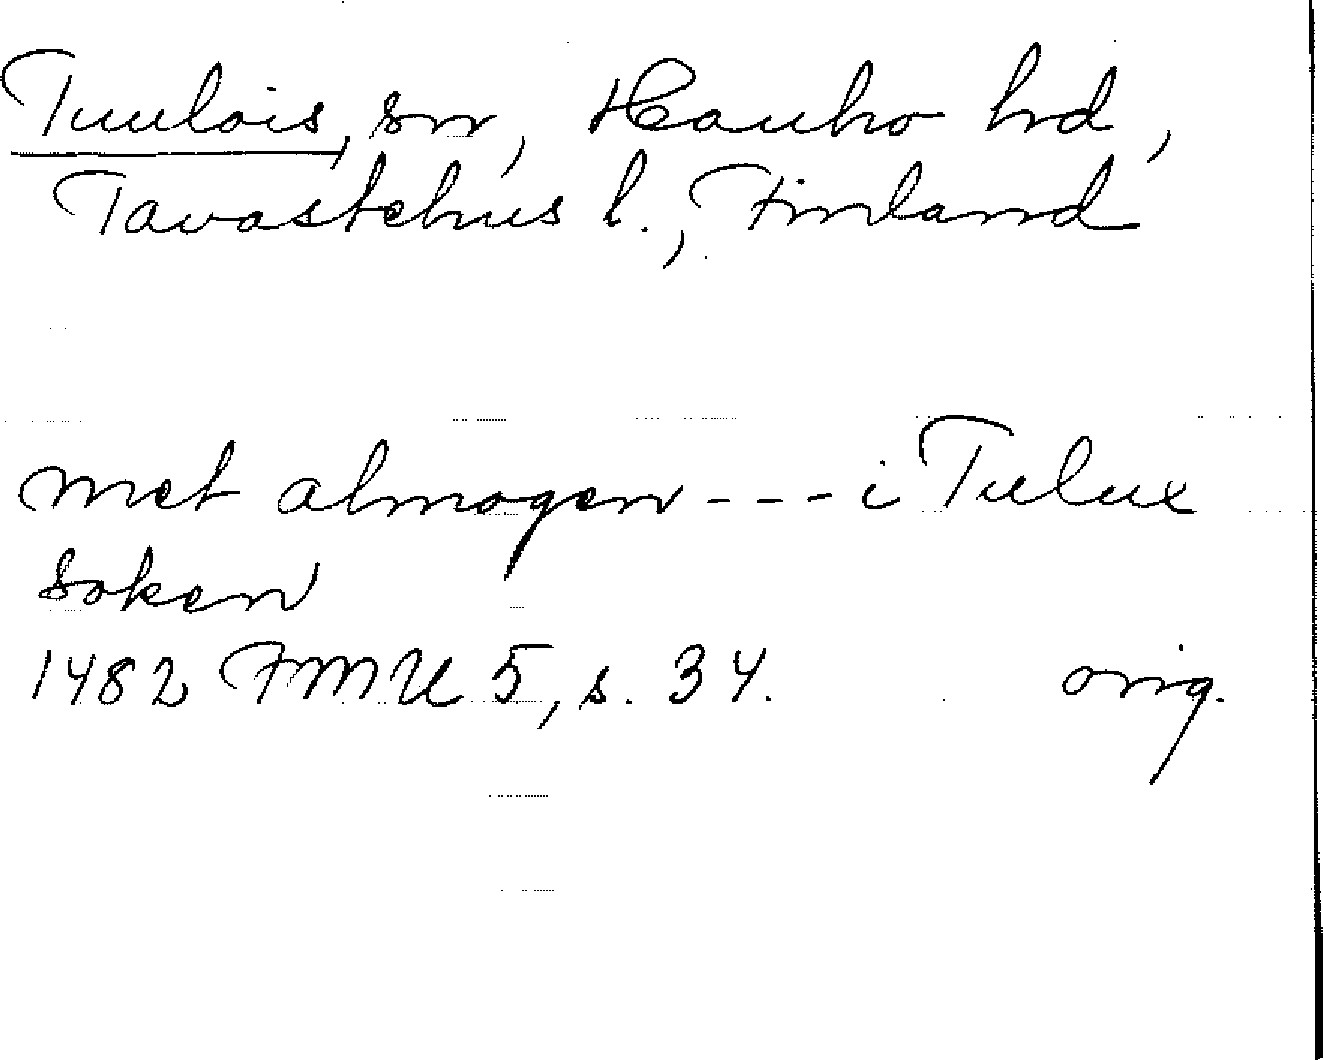 Tuulois, sn, Hauho hd,
Tavastehus l., Finland
met almogen --- i Tulux
soken
1482 FMU 5, s. 34. orig.